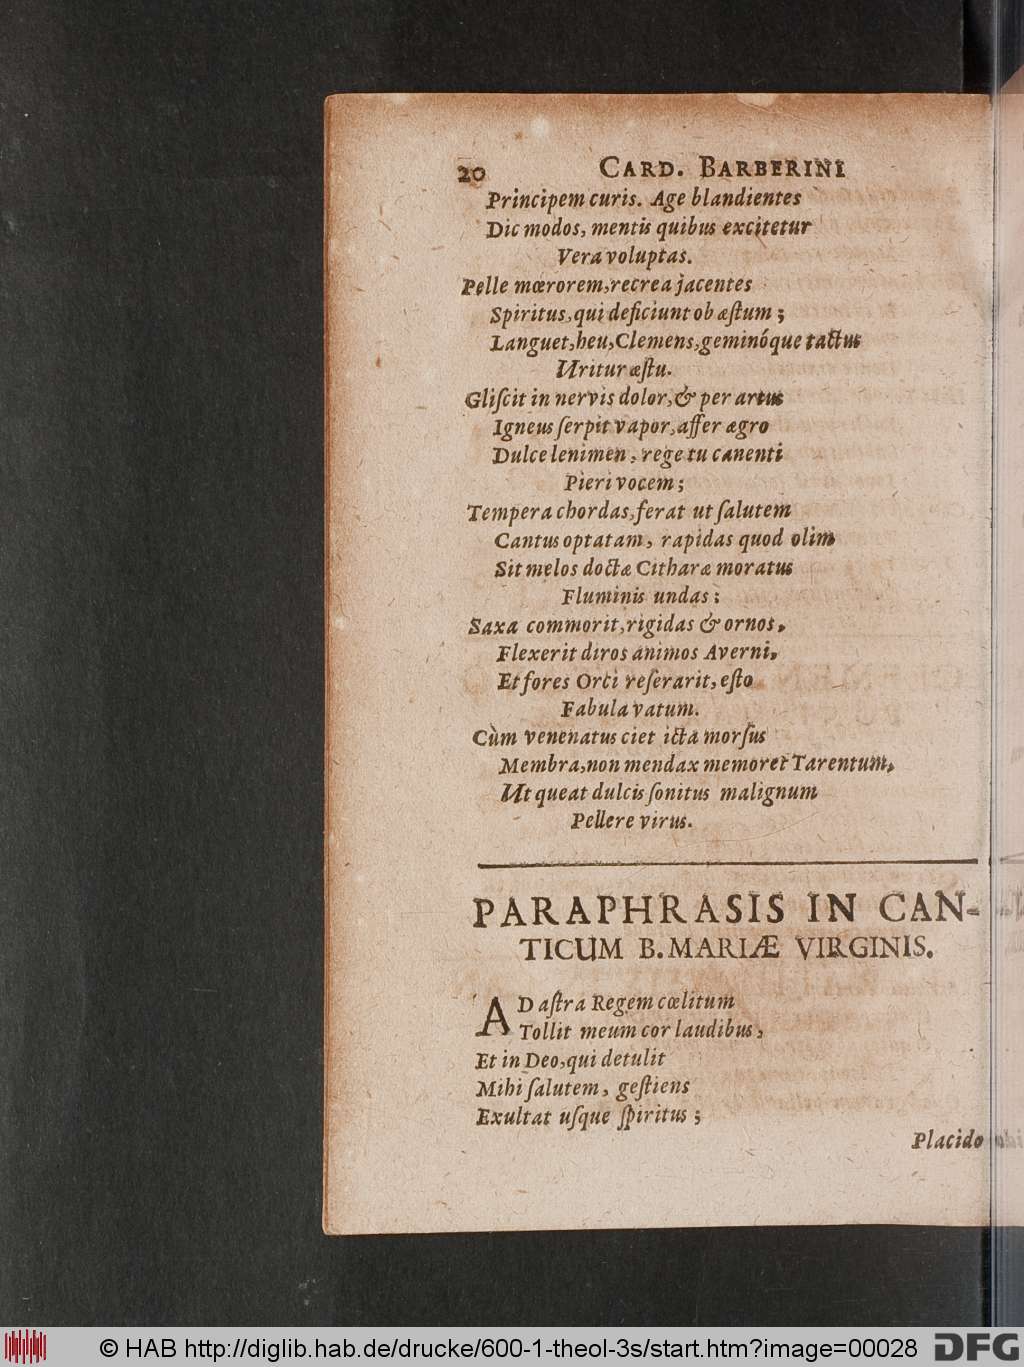 20 CARD. BARBERINI
Principem curis. Age blandientes
Dic modos, mentis quibus excitetur
Vera voluptas.
Pelle mœrorem, recrea jacentes
Spiritus, qui deficiunt ob æſtum;
Languet, heu, Clemens, geminóque tactus
Uritur æſtu.
Gliſcit in nervis dolor, & per artus
Igneus ſerpit vapor, affer ægro
Dulce lenimen, rege tu canenti
Pieri vocem;
Tempera chordas, ferat ut ſalutem
Cantus optatam, rapidas quod olim
Sit melos doctæ Citharæ moratus
Fluminis undas;
Saxa commorit, rigidas & ornos,
Flexerit diros animos Averni,
Et fores Orci reſerarit, eſto
Fabula vatum.
Cùm venenatus ciet icta morſus
Membra, non mendax memoret Tarentum,
Ut queat dulcis ſonitus malignum
Pellere virus.
PARAPHRASIS IN CAN-
TICUM B. MARIÆ VIRGINIS.
AD aſtra Regem cœlitum
Tollit meum cor laudibus,
Et in Deo, qui detulit
Mihi ſalutem, geſtiens
Exultat uſque ſpiritus;
Placido
© HAB http://diglib.hab.de/drucke/600-1-theol-3s/start.htm?image=00028 DFG